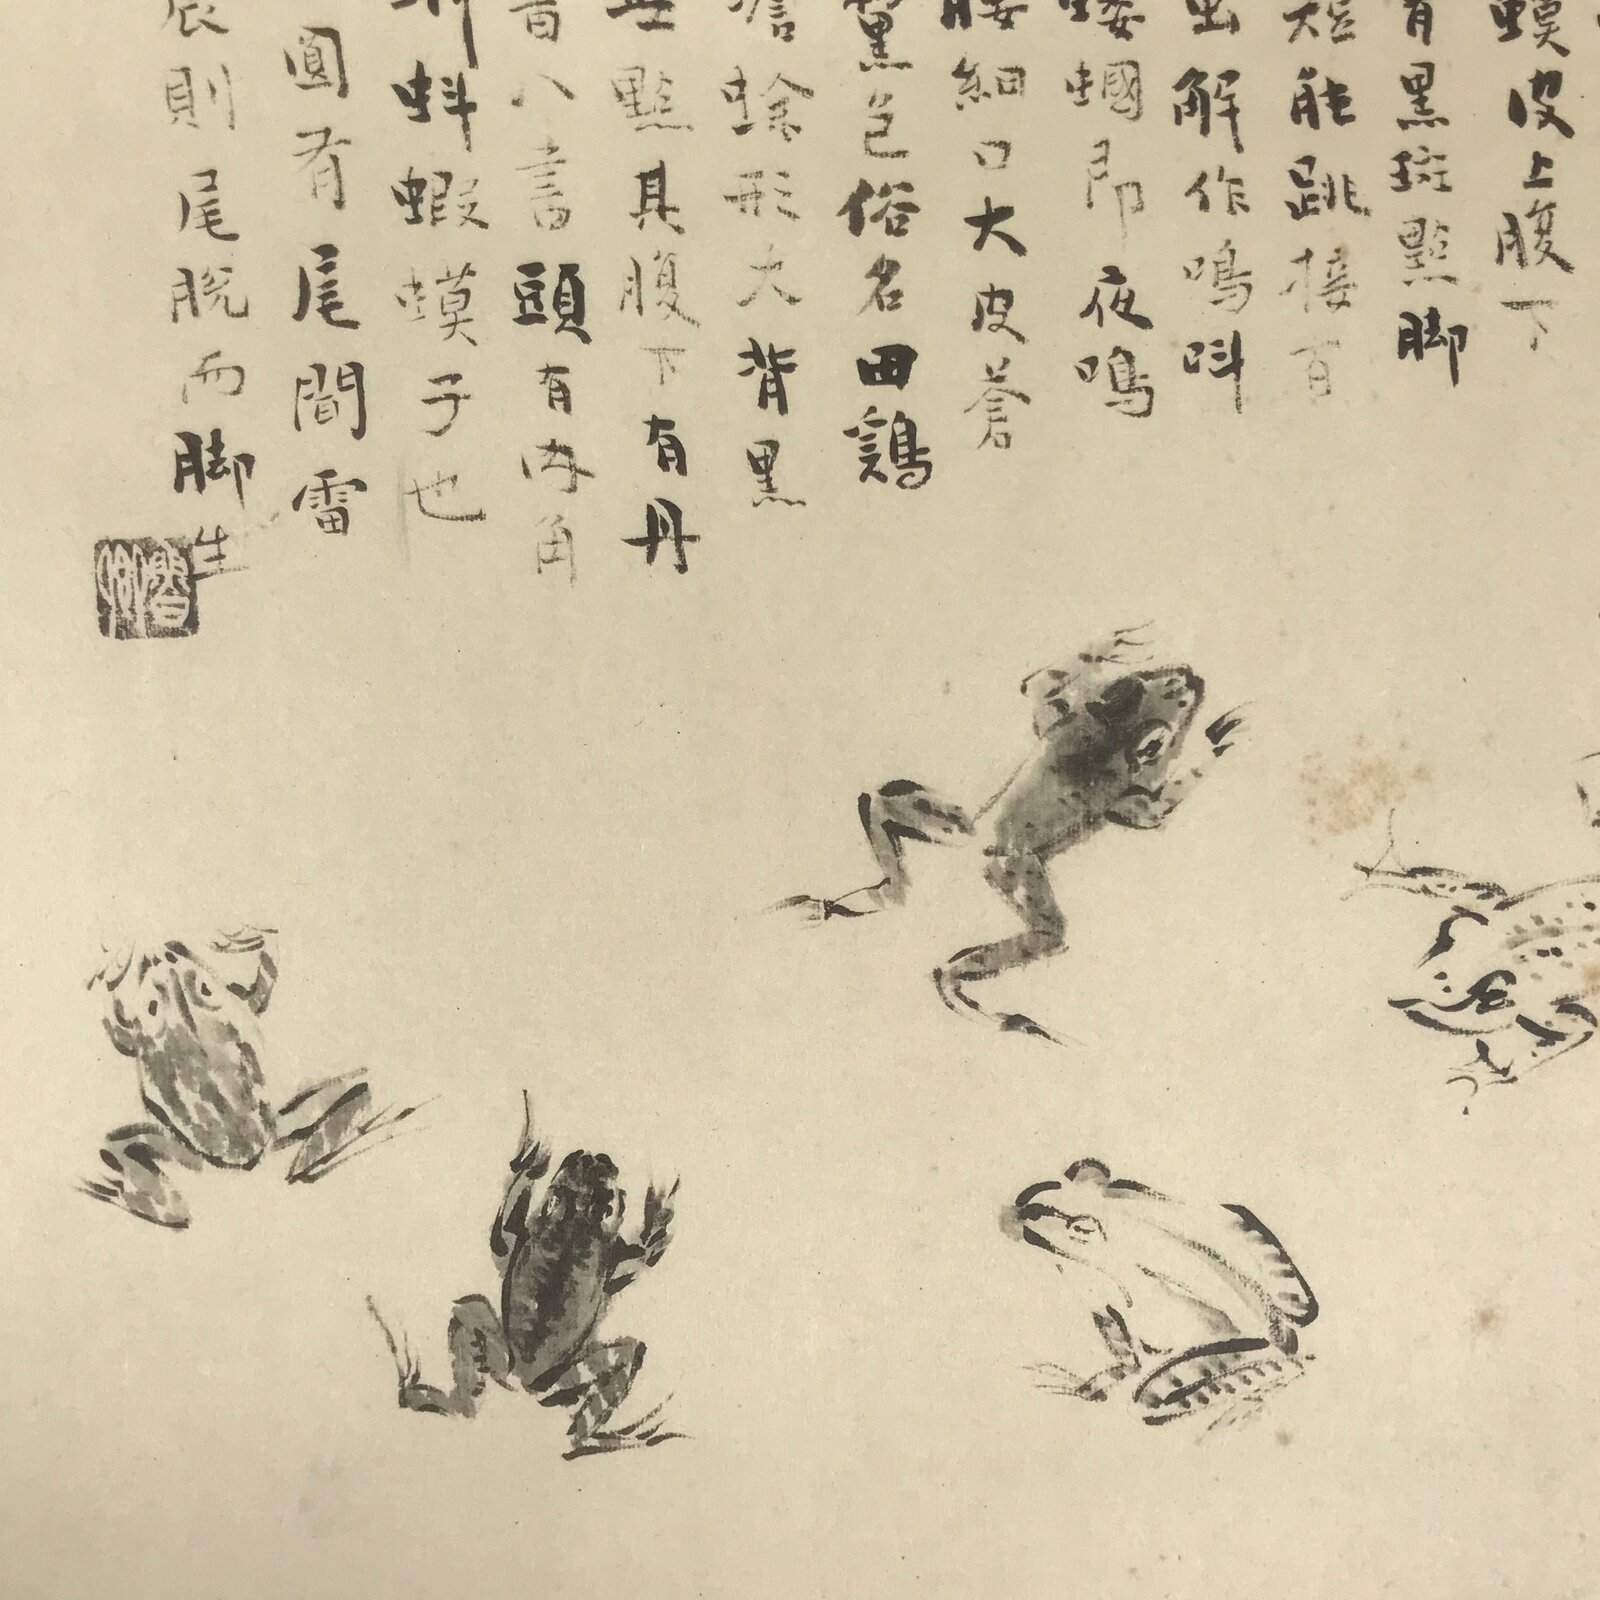 蟆皮上腹下
青黑斑點脚
短能跳接百
出解作鳴呌
螻蟈即夜鳴
腰細口大皮蒼
黨色俗名田鷄
蟾蜍形大背黑
無點其腹下有丹
書八字頭有肉角
蚪蝦蟆子也
圓有尾聞雷
震則尾脫而脚生